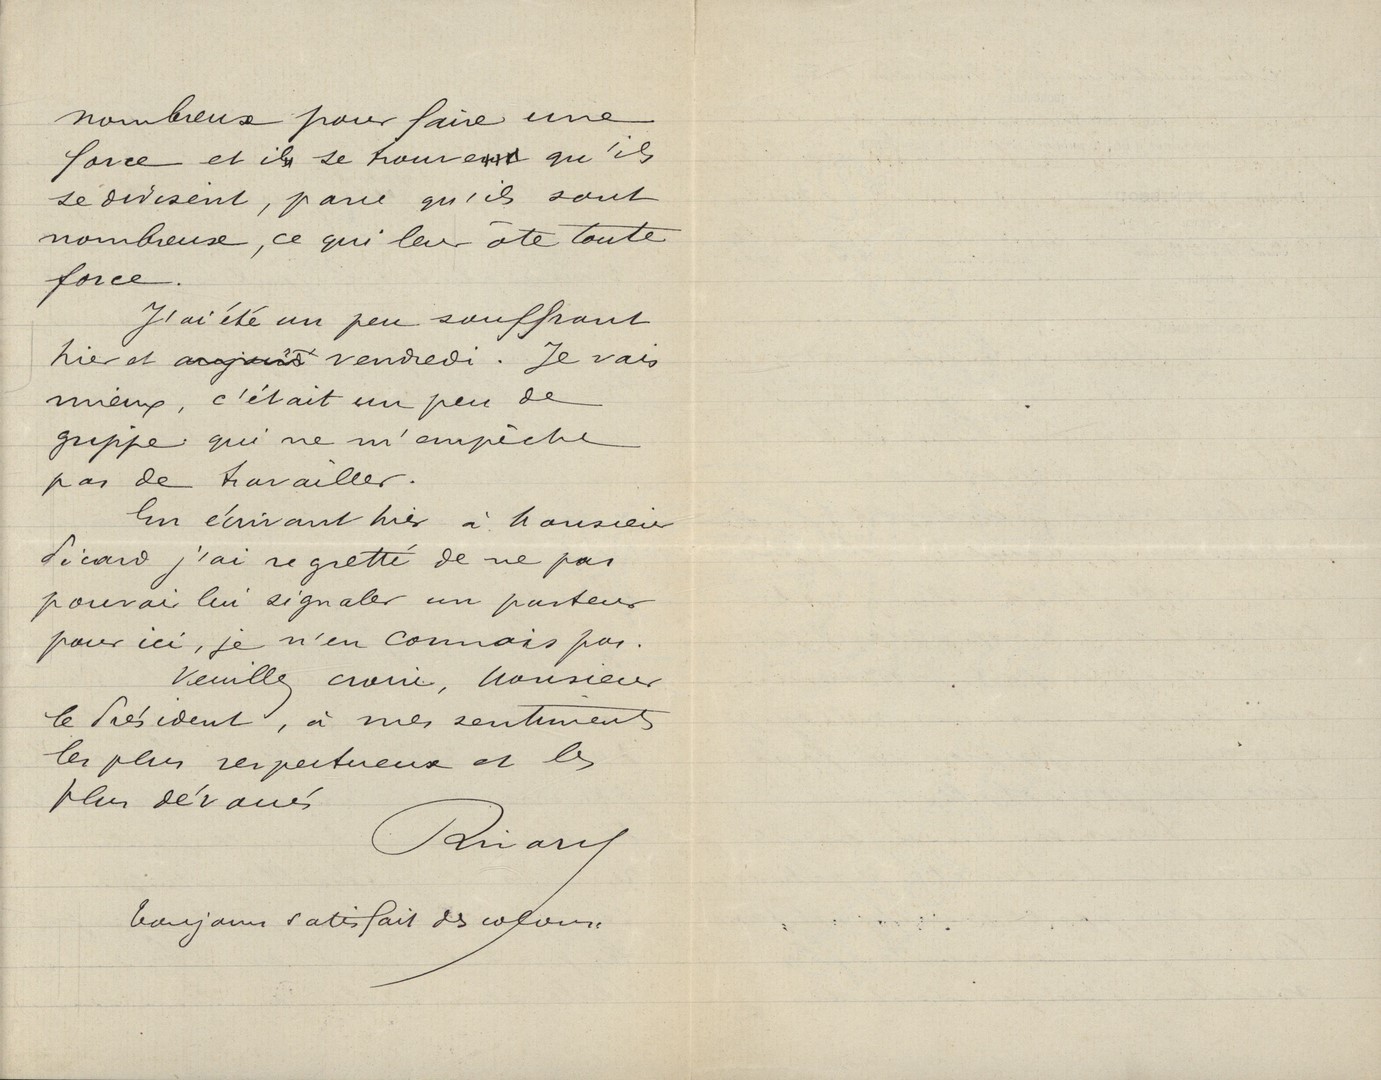 nombreux pour faire une
force et il se trouve qu'ils
se divisent, parce qu'ils sont
nombreux, ce qui leur ôte toute
force.
J'ai été un peu souffrant
hier et vendredi. Je vais
mieux, c'était un peu de
grippe qui ne m'empêche
pas de travailler.
En écrivant hier à Monsieur
Picard j'ai regretté de ne pas
pouvoir lui signaler un pasteur
pour ici, je n'en connais pas.
Veuillez croire, Monsieur
le Président, à mes sentiments
les plus respectueux et les
plus dévoués
Toujours satisfait des colons.